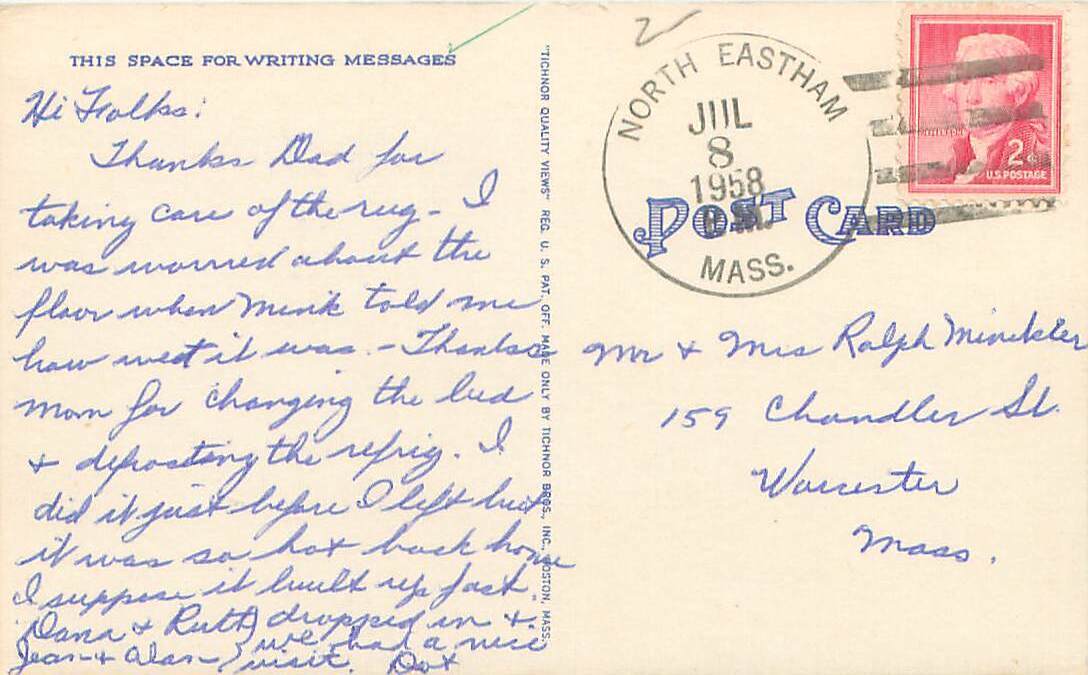 THIS SPACE FOR WRITING MESSAGES
Hi Folks:
Thanks Dad for
taking care of the rug - I
was worried about the
floor when Mink told me
how wet it was. - Thanks
Mom for changing the bed
& defrosting the refrig. I
did it just before I left but
it was so hot back home
I suppose it built up fast.
Dana & Ruth } dropped in &
Jean & Alan } we had a nice
visit. Dot
"TICHNOR QUALITY VIEWS" REG. U. S. PAT. OFF. MADE ONLY BY TICHNOR BROS., INC., BOSTON, MASS.
2
NORTH EASTHAM
JUL
8
1958
MASS.
2¢
U.S. POSTAGE
POST CARD
Mr & Mrs Ralph Minckler
159 Chandler St.
Worcester
Mass.